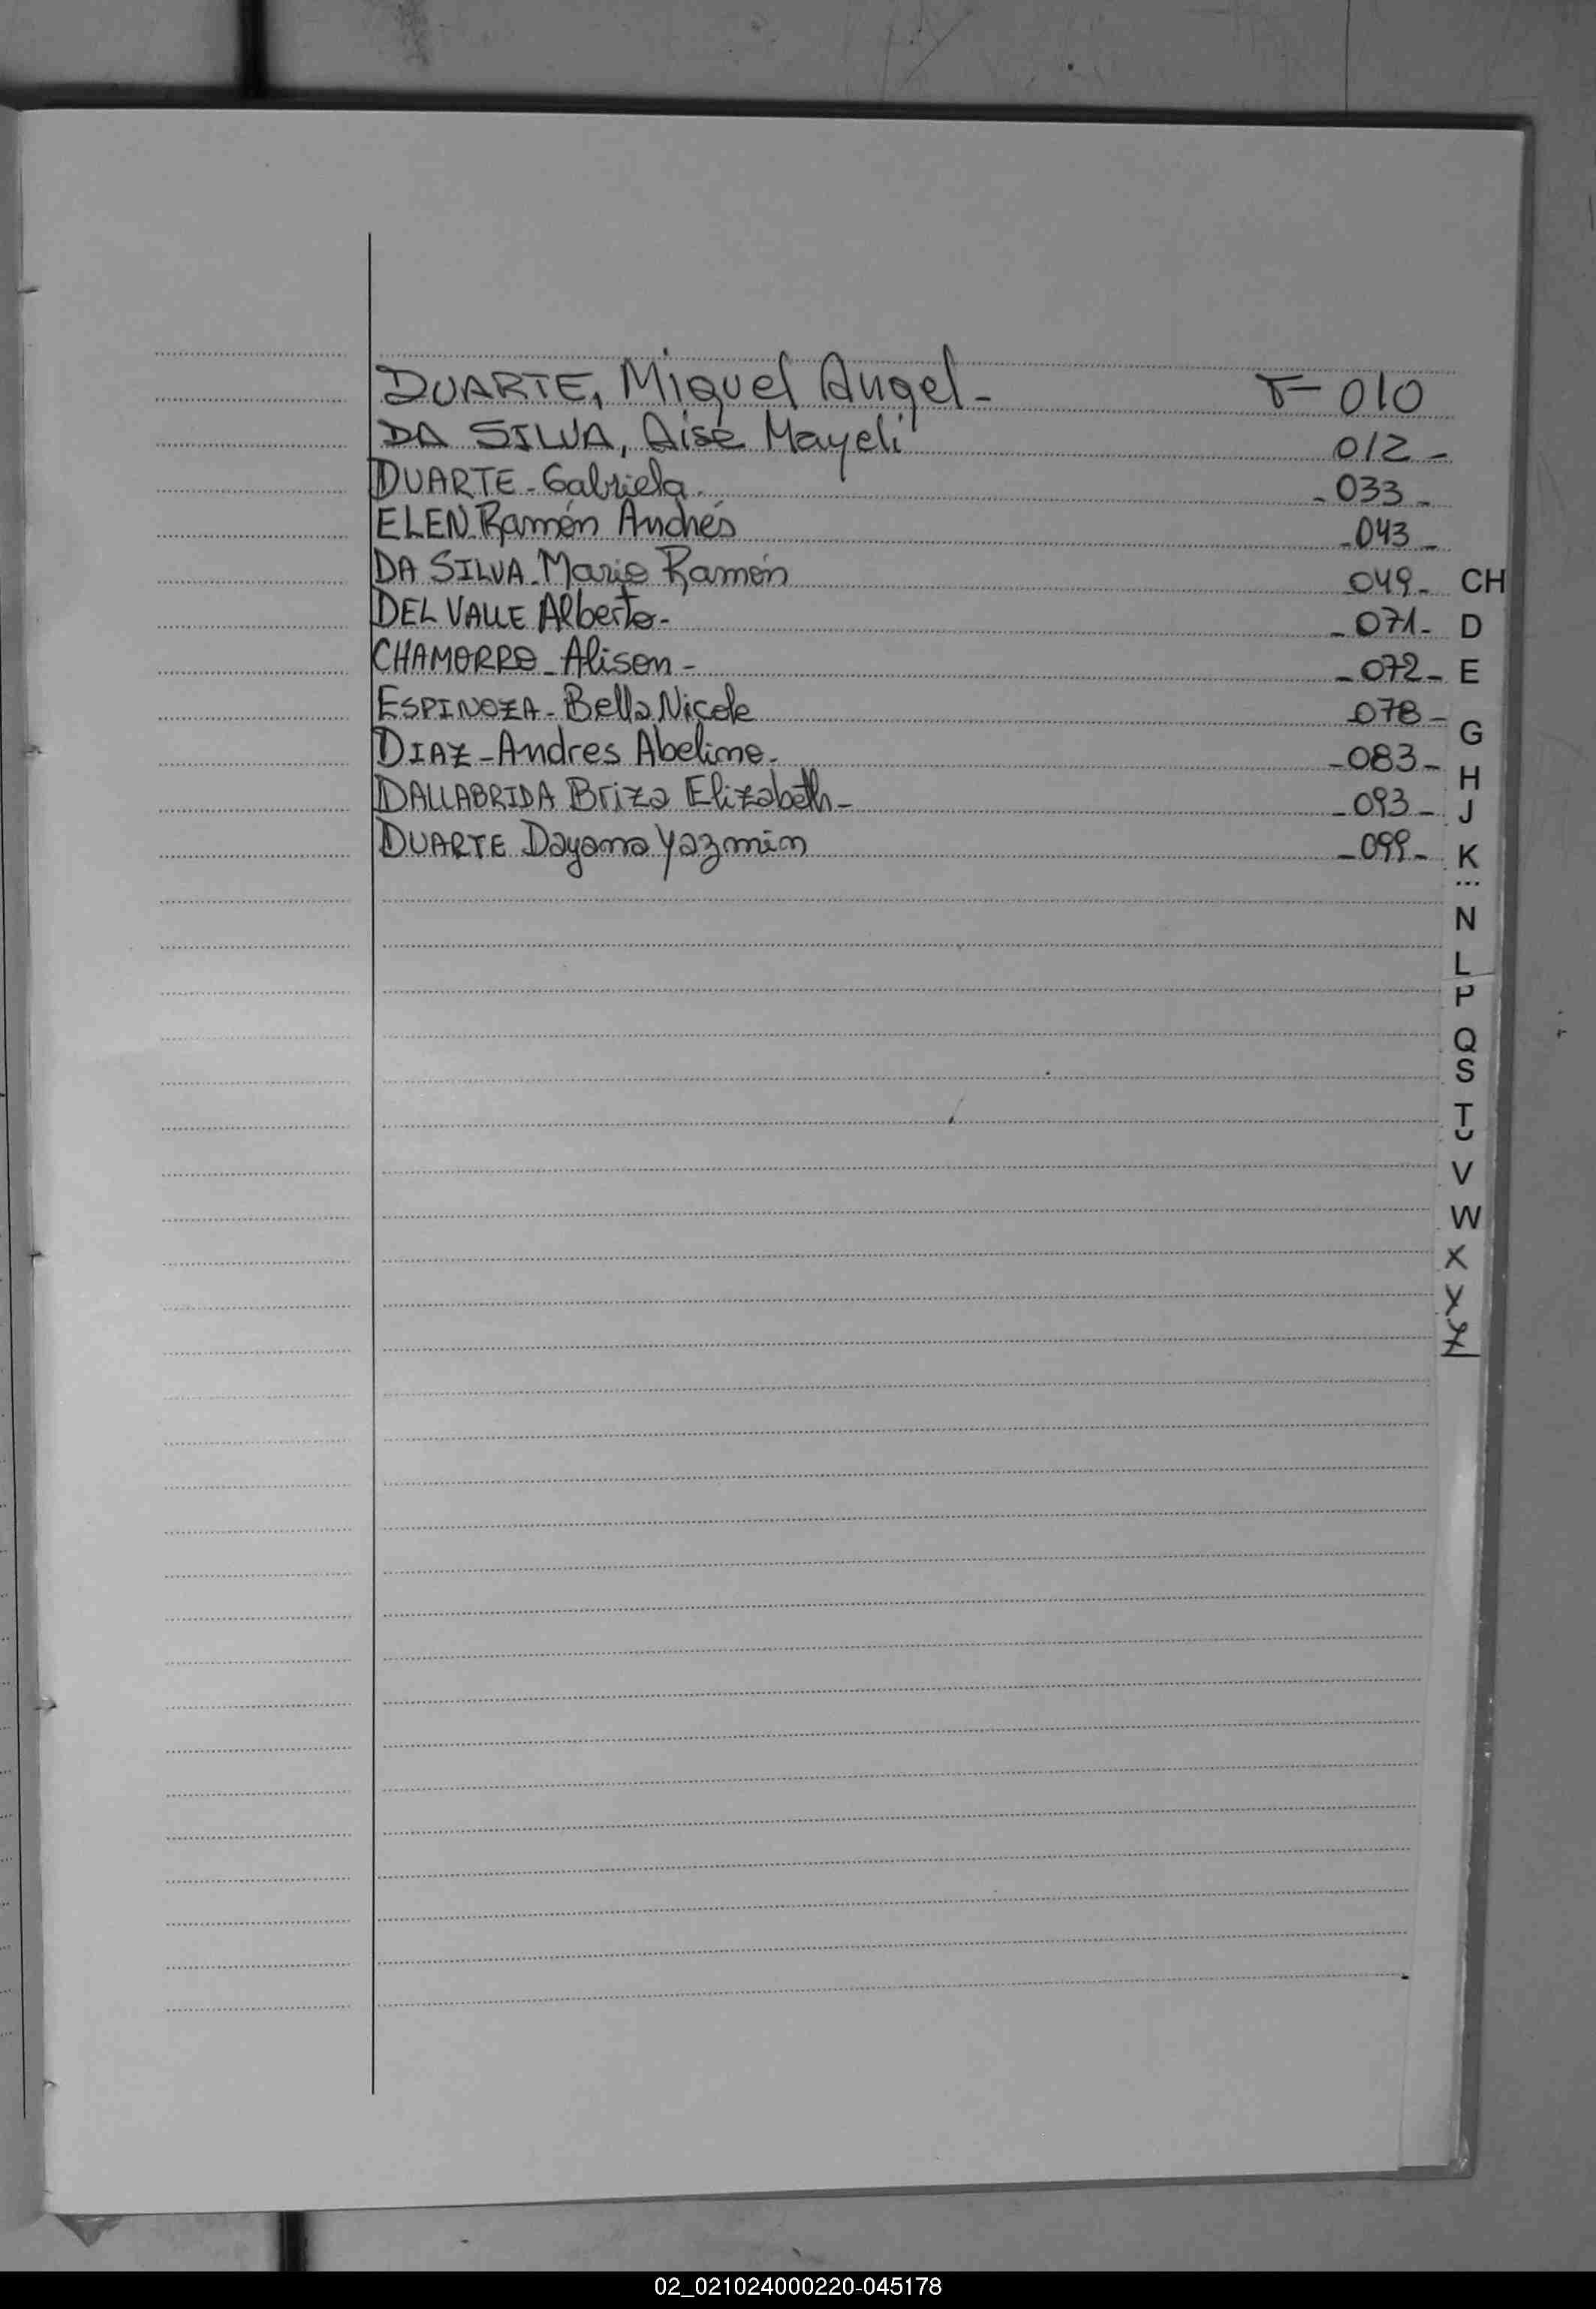 DUARTE, Miguel Angel - F- 010
DA SILVA, Aisé Mayeli 012 -
DUARTE - Gabriela. - 033 -
ELEN Ramón Andrés - 043 -
DA SILVA - Mario Ramón 049 - CH
DEL VALLE Alberto - - 071 - D
CHAMORRO - Alison - - 072 - E
ESPINOZA - Bella Nicole 078 -
G
DIAZ - Andres Abelino - - 083 -
H
DALLABRIDA Briza Elizabeth - - 093 - J
DUARTE Dayana Yazmin - 099 - K
...
N
L
P
Q
S
T
V
W
X
Y
Z
02_021024000220-045178